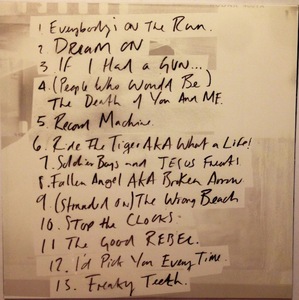 1. Everybody's on The Run.
2 DREAM ON
3 IF I HAD A GUN...
4. (PEOPLE WHO WOULD BE)
The DEATH OF YOU AND ME.
5. Record Machine.
6. Ride The Tiger AKA What a Life!
7. Soldier Boys and JESUS Freaks.
8. Fallen Angel AKA Broken Arrow
9. (Stranded on) The Wrong Beach
10. STOP the CLOCKS.
11 The GOOD REBEL.
12. I'd Pick You Every Time.
13. Freaky Teeth.